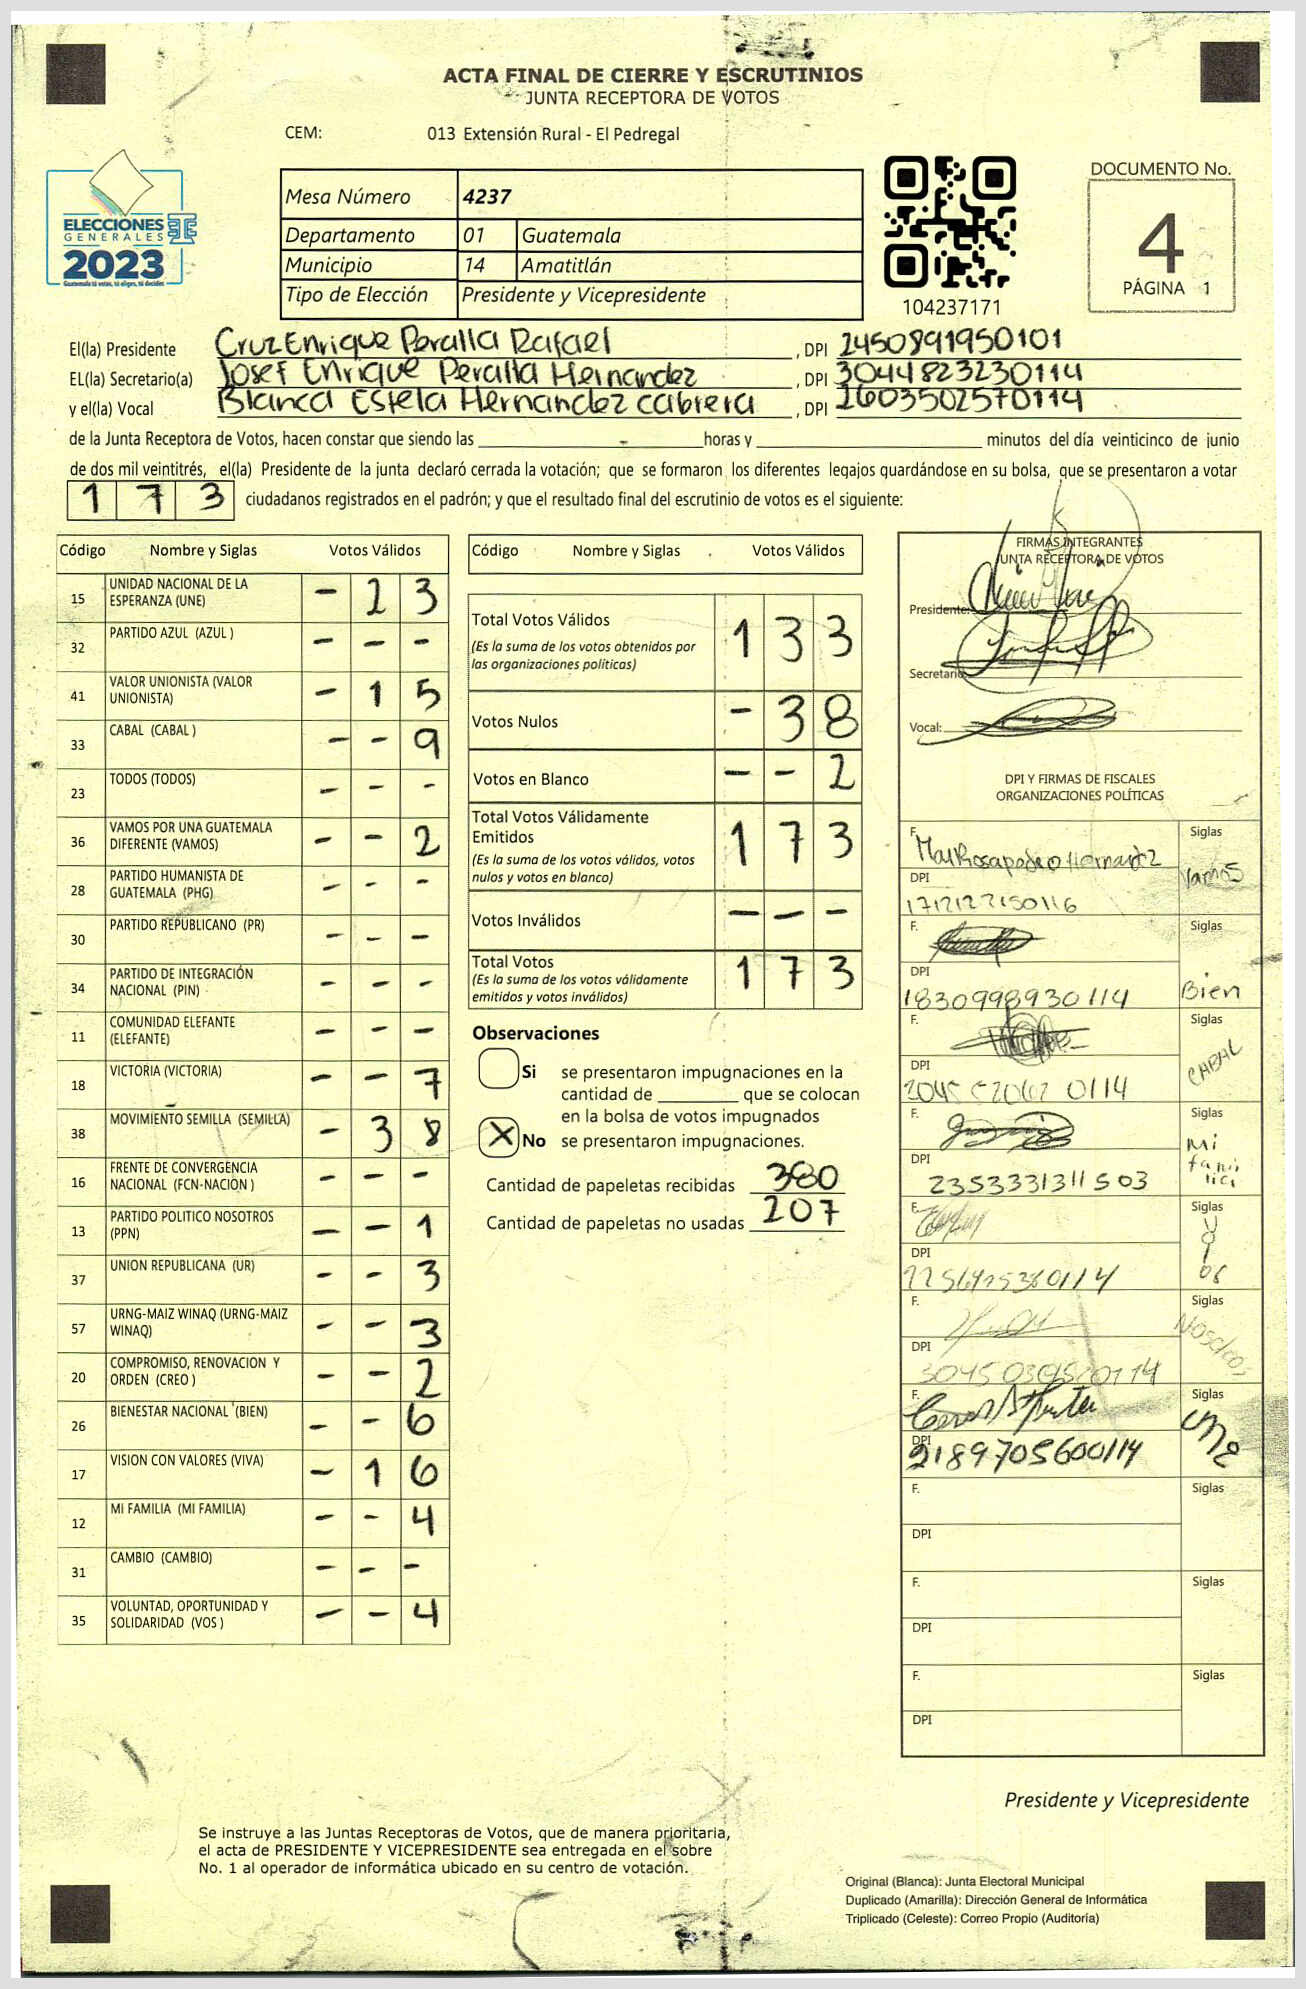 ACTA FINAL DE CIERRE Y ESCRUTINIOS
JUNTA RECEPTORA DE VOTOS
CEM: 013 Extensión Rural - El Pedregal
ELECCIONES
GENERALES
2023
Guatemala tú votas, tú eliges, tú decides
Mesa Número 4237
Departamento 01 Guatemala
Municipio 14 Amatitlán
Tipo de Elección Presidente y Vicepresidente
104237171
DOCUMENTO No.
4
PÁGINA 1
El(la) Presidente Cruz Enrique Peralla Rafael, DPI 2450891950101
EL(la) Secretario(a) Josef Enrique Peralla Hernandez, DPI 3044823230114
y el(la) Vocal Blanca Estela Hernandez cabrera, DPI 2603502570114
de la Junta Receptora de Votos, hacen constar que siendo las - horas y minutos del día veinticinco de junio
de dos mil veintitrés, el(la) Presidente de la junta declaró cerrada la votación; que se formaron los diferentes legajos quardándose en su bolsa, que se presentaron a votar
1 7 3 ciudadanos registrados en el padrón; y que el resultado final del escrutinio de votos es el siguiente:
Código Nombre y Siglas Votos Válidos
15 UNIDAD NACIONAL DE LA ESPERANZA (UNE) - 2 3
32 PARTIDO AZUL (AZUL ) - - -
41 VALOR UNIONISTA (VALOR UNIONISTA) - 1 5
33 CABAL (CABAL ) - - 9
23 TODOS (TODOS) - - -
36 VAMOS POR UNA GUATEMALA DIFERENTE (VAMOS) - - 2
28 PARTIDO HUMANISTA DE GUATEMALA (PHG) - - -
30 PARTIDO REPUBLICANO (PR) - - -
34 PARTIDO DE INTEGRACIÓN NACIONAL (PIN) - - -
11 COMUNIDAD ELEFANTE (ELEFANTE) - - -
18 VICTORIA (VICTORIA) - - 7
38 MOVIMIENTO SEMILLA (SEMILLA) - 3 8
16 FRENTE DE CONVERGENCIA NACIONAL (FCN-NACION ) - - -
13 PARTIDO POLITICO NOSOTROS (PPN) - - 1
37 UNION REPUBLICANA (UR) - - 3
57 URNG-MAIZ WINAQ (URNG-MAIZ WINAQ) - - 3
20 COMPROMISO, RENOVACION Y ORDEN (CREO ) - - 2
26 BIENESTAR NACIONAL (BIEN) - - 6
17 VISION CON VALORES (VIVA) - 1 6
12 MI FAMILIA (MI FAMILIA) - - 4
31 CAMBIO (CAMBIO) - - -
35 VOLUNTAD, OPORTUNIDAD Y SOLIDARIDAD (VOS ) - - 4
Código Nombre y Siglas Votos Válidos
Total Votos Válidos 1 3 3
(Es la suma de los votos obtenidos por
las organizaciones políticas)
Votos Nulos - 3 8
Votos en Blanco - - 2
Total Votos Válidamente
Emitidos 1 7 3
(Es la suma de los votos válidos, votos
nulos y votos en blanco)
Votos Inválidos - - -
Total Votos 1 7 3
(Es la suma de los votos válidamente
emitidos y votos inválidos)
Observaciones
Si se presentaron impugnaciones en la
cantidad de ________ que se colocan
en la bolsa de votos impugnados
X No se presentaron impugnaciones.
Cantidad de papeletas recibidas 380
Cantidad de papeletas no usadas 207
FIRMAS INTEGRANTES
JUNTA RECEPTORA DE VOTOS
Presidente:
Secretario:
Vocal:
DPI Y FIRMAS DE FISCALES
ORGANIZACIONES POLÍTICAS
F. Siglas
Vamos
DPI
F. Siglas
DPI Bien
1830998930114
F. Siglas
CABAL
DPI
0114
F. Siglas
Mi
DPI
2353331311503
F. Siglas
DPI
F. Siglas
DPI
F. Siglas
UNE
DPI
2189705600114
F. Siglas
DPI
F. Siglas
DPI
F. Siglas
DPI
Presidente y Vicepresidente
Se instruye a las Juntas Receptoras de Votos, que de manera prioritaria,
el acta de PRESIDENTE Y VICEPRESIDENTE sea entregada en el sobre
No. 1 al operador de informática ubicado en su centro de votación.
Original (Blanca): Junta Electoral Municipal
Duplicado (Amarilla): Dirección General de Informática
Triplicado (Celeste): Correo Propio (Auditoría)